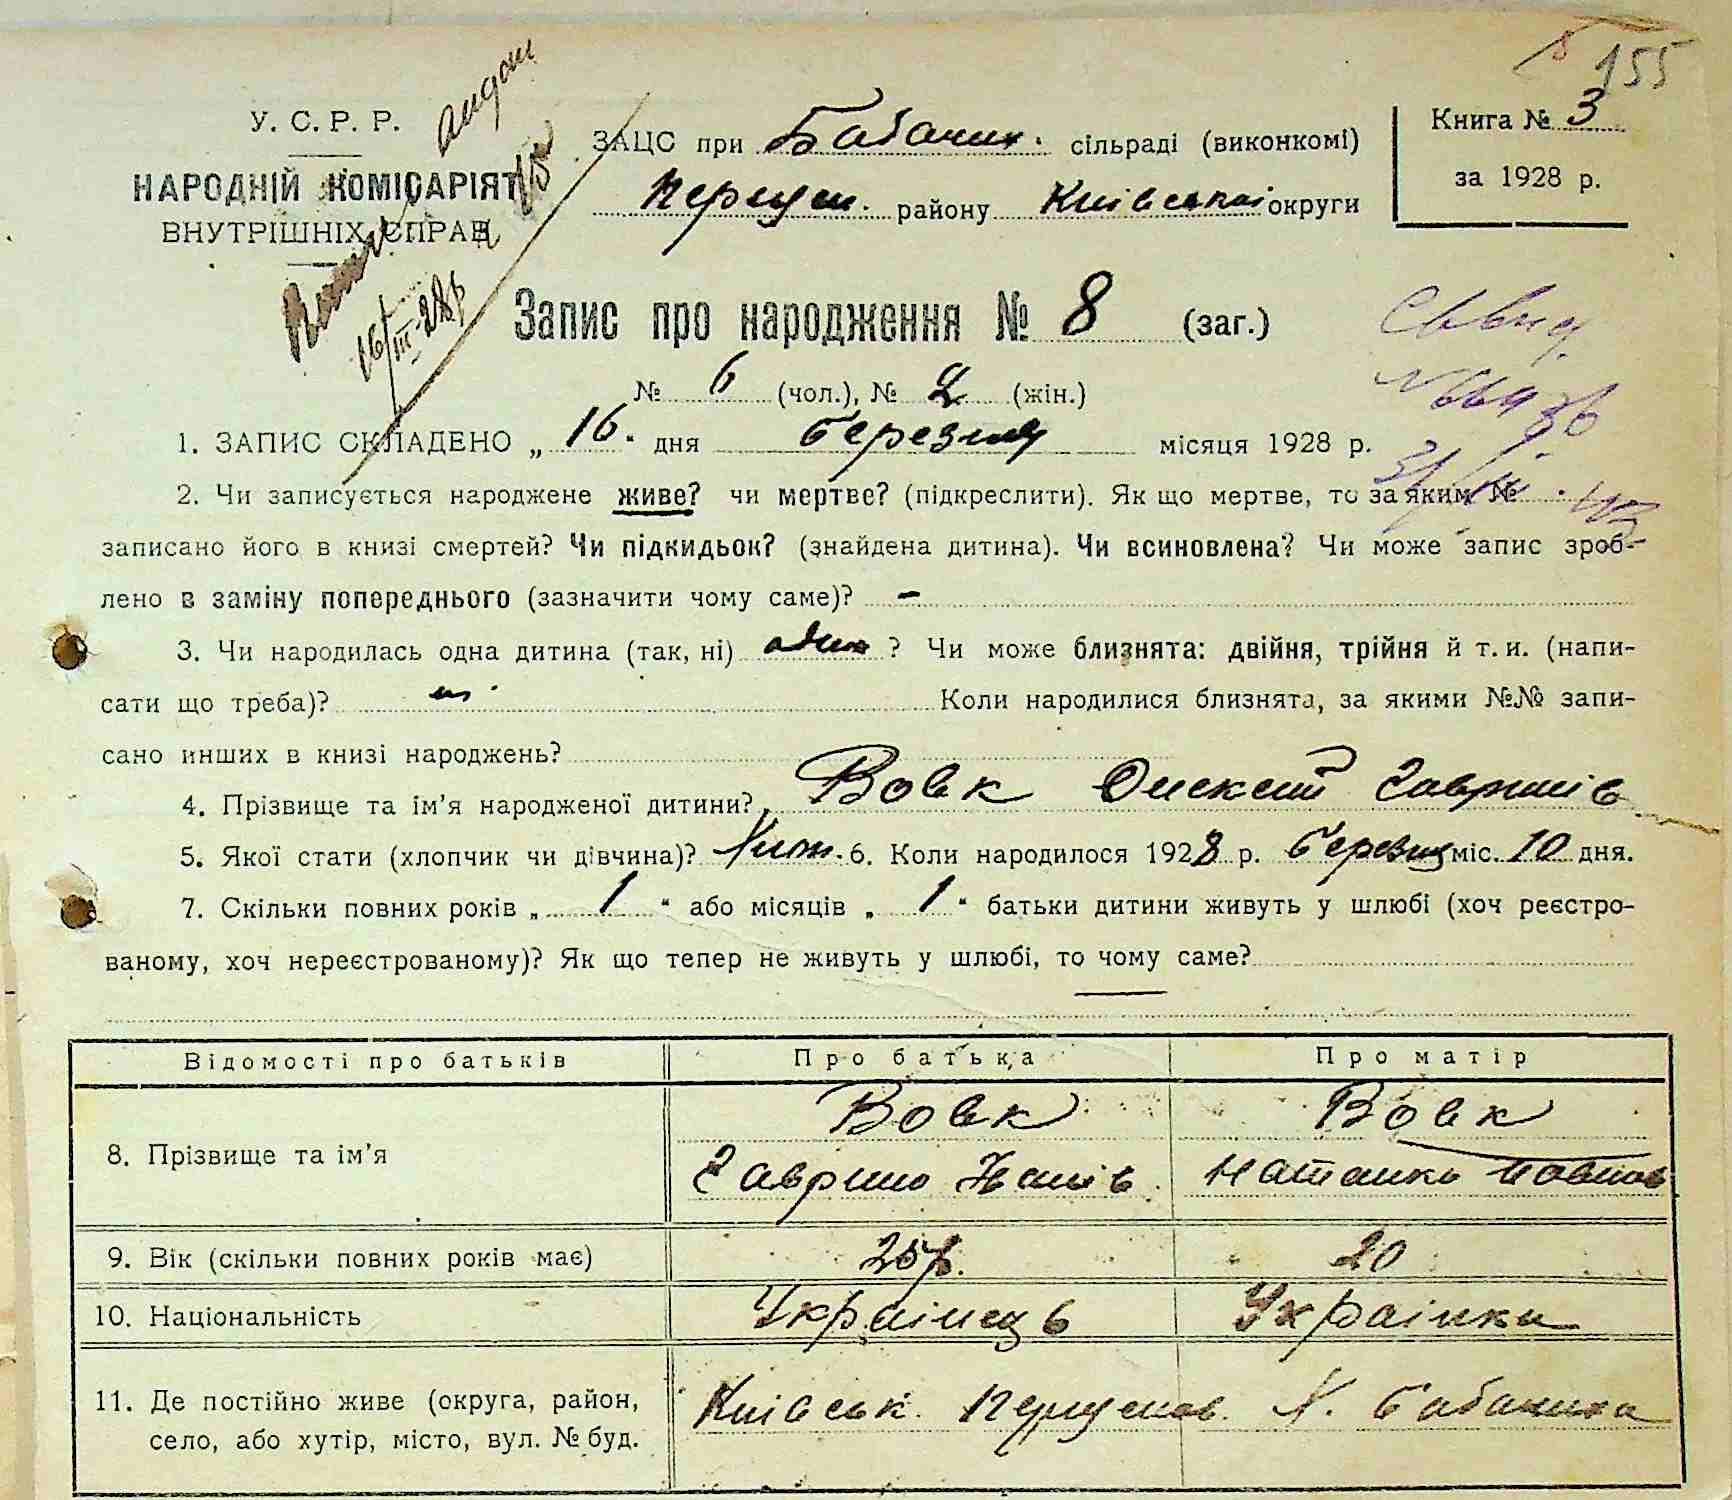 155
У. С. Р. Р.
НАРОДНІЙ КОМІСАРІЯТ
ВНУТРІШНІХ СПРАВ
16/III-28р
ЗАЦС при Бабачих. сільраді (виконкомі)
району Київської округи
Книга № 3
за 1928 р.
Запис про народження № 8 (заг.)
№ 6 (чол.), № 2 (жін.)
1. ЗАПИС СКЛАДЕНО „ 16 “ дня березня місяця 1928 р.
2. Чи записується народжене живе? чи мертве? (підкреслити). Як що мертве, то за яким №
записано його в книзі смертей? Чи підкидьок? (знайдена дитина). Чи всиновлена? Чи може запис зроб-
лено в заміну попереднього (зазначити чому саме)? –
3. Чи народилась одна дитина (так, ні) один ? Чи може близнята: двійня, трійня й т. и. (напи-
сати що треба)? ні Коли народилися близнята, за якими №№ запи-
сано инших в книзі народжень?
4. Прізвище та ім’я народженої дитини? Вовк Олексій Гаврилів
5. Якої стати (хлопчик чи дівчина)? 6. Коли народилося 1928 р. березня міс. 10 дня.
7. Скільки повних років „ 1 “ або місяців „ 1 “ батьки дитини живуть у шлюбі (хоч реєстро-
ваному, хоч нереєстрованому)? Як що тепер не живуть у шлюбі, то чому саме?
Відомості про батьків Про батька Про матір
8. Прізвище та ім’я Вовк Гаврило Іванів Вовк Наталка Павлов
9. Вік (скільки повних років має) 25р. 20
10. Національність Українець Українка
11. Де постійно живе (округа, район,
село, або хутір, місто, вул. № буд. Київськ. Х. Бабачиха